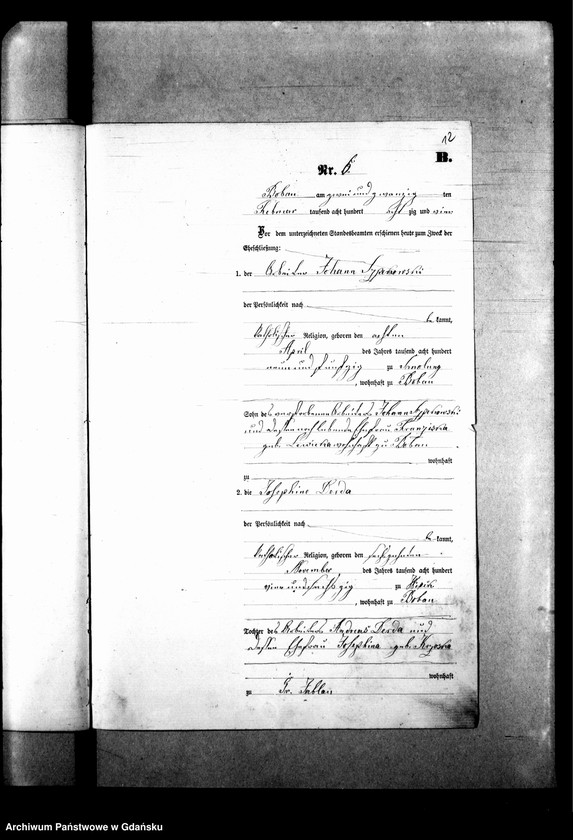 12
B.
Nr. 6.
Boban am zwei und zwanzig ten
Februar tausend acht hundert acht zig und vier
Vor dem unterzeichneten Standesbeamten erschienen heute zum Zweck der
Eheschließung:
1. der Arbeiter Johann
der Persönlichkeit nach
be kannt,
katholischer Religion, geboren den achten
April des Jahres tausend acht hundert
neun und fünfzig zu
, wohnhaft zu Boban
Sohn des verstorbenen Arbeiters Johann
und dessen noch lebende Ehefrau Franziska
geb. wohnhaft zu Boban
wohnhaft
zu
2. die Josephine Derda
der Persönlichkeit nach
be kannt,
katholischer Religion, geboren den sechszehnten
November des Jahres tausend acht hundert
vier und sechszig zu
, wohnhaft zu Boban
Tochter des Arbeiters Andreas Derda und
dessen Ehefrau Josephine geb.
wohnhaft
zu Gr. Jablau
Archiwum Państwowe w Gdańsku